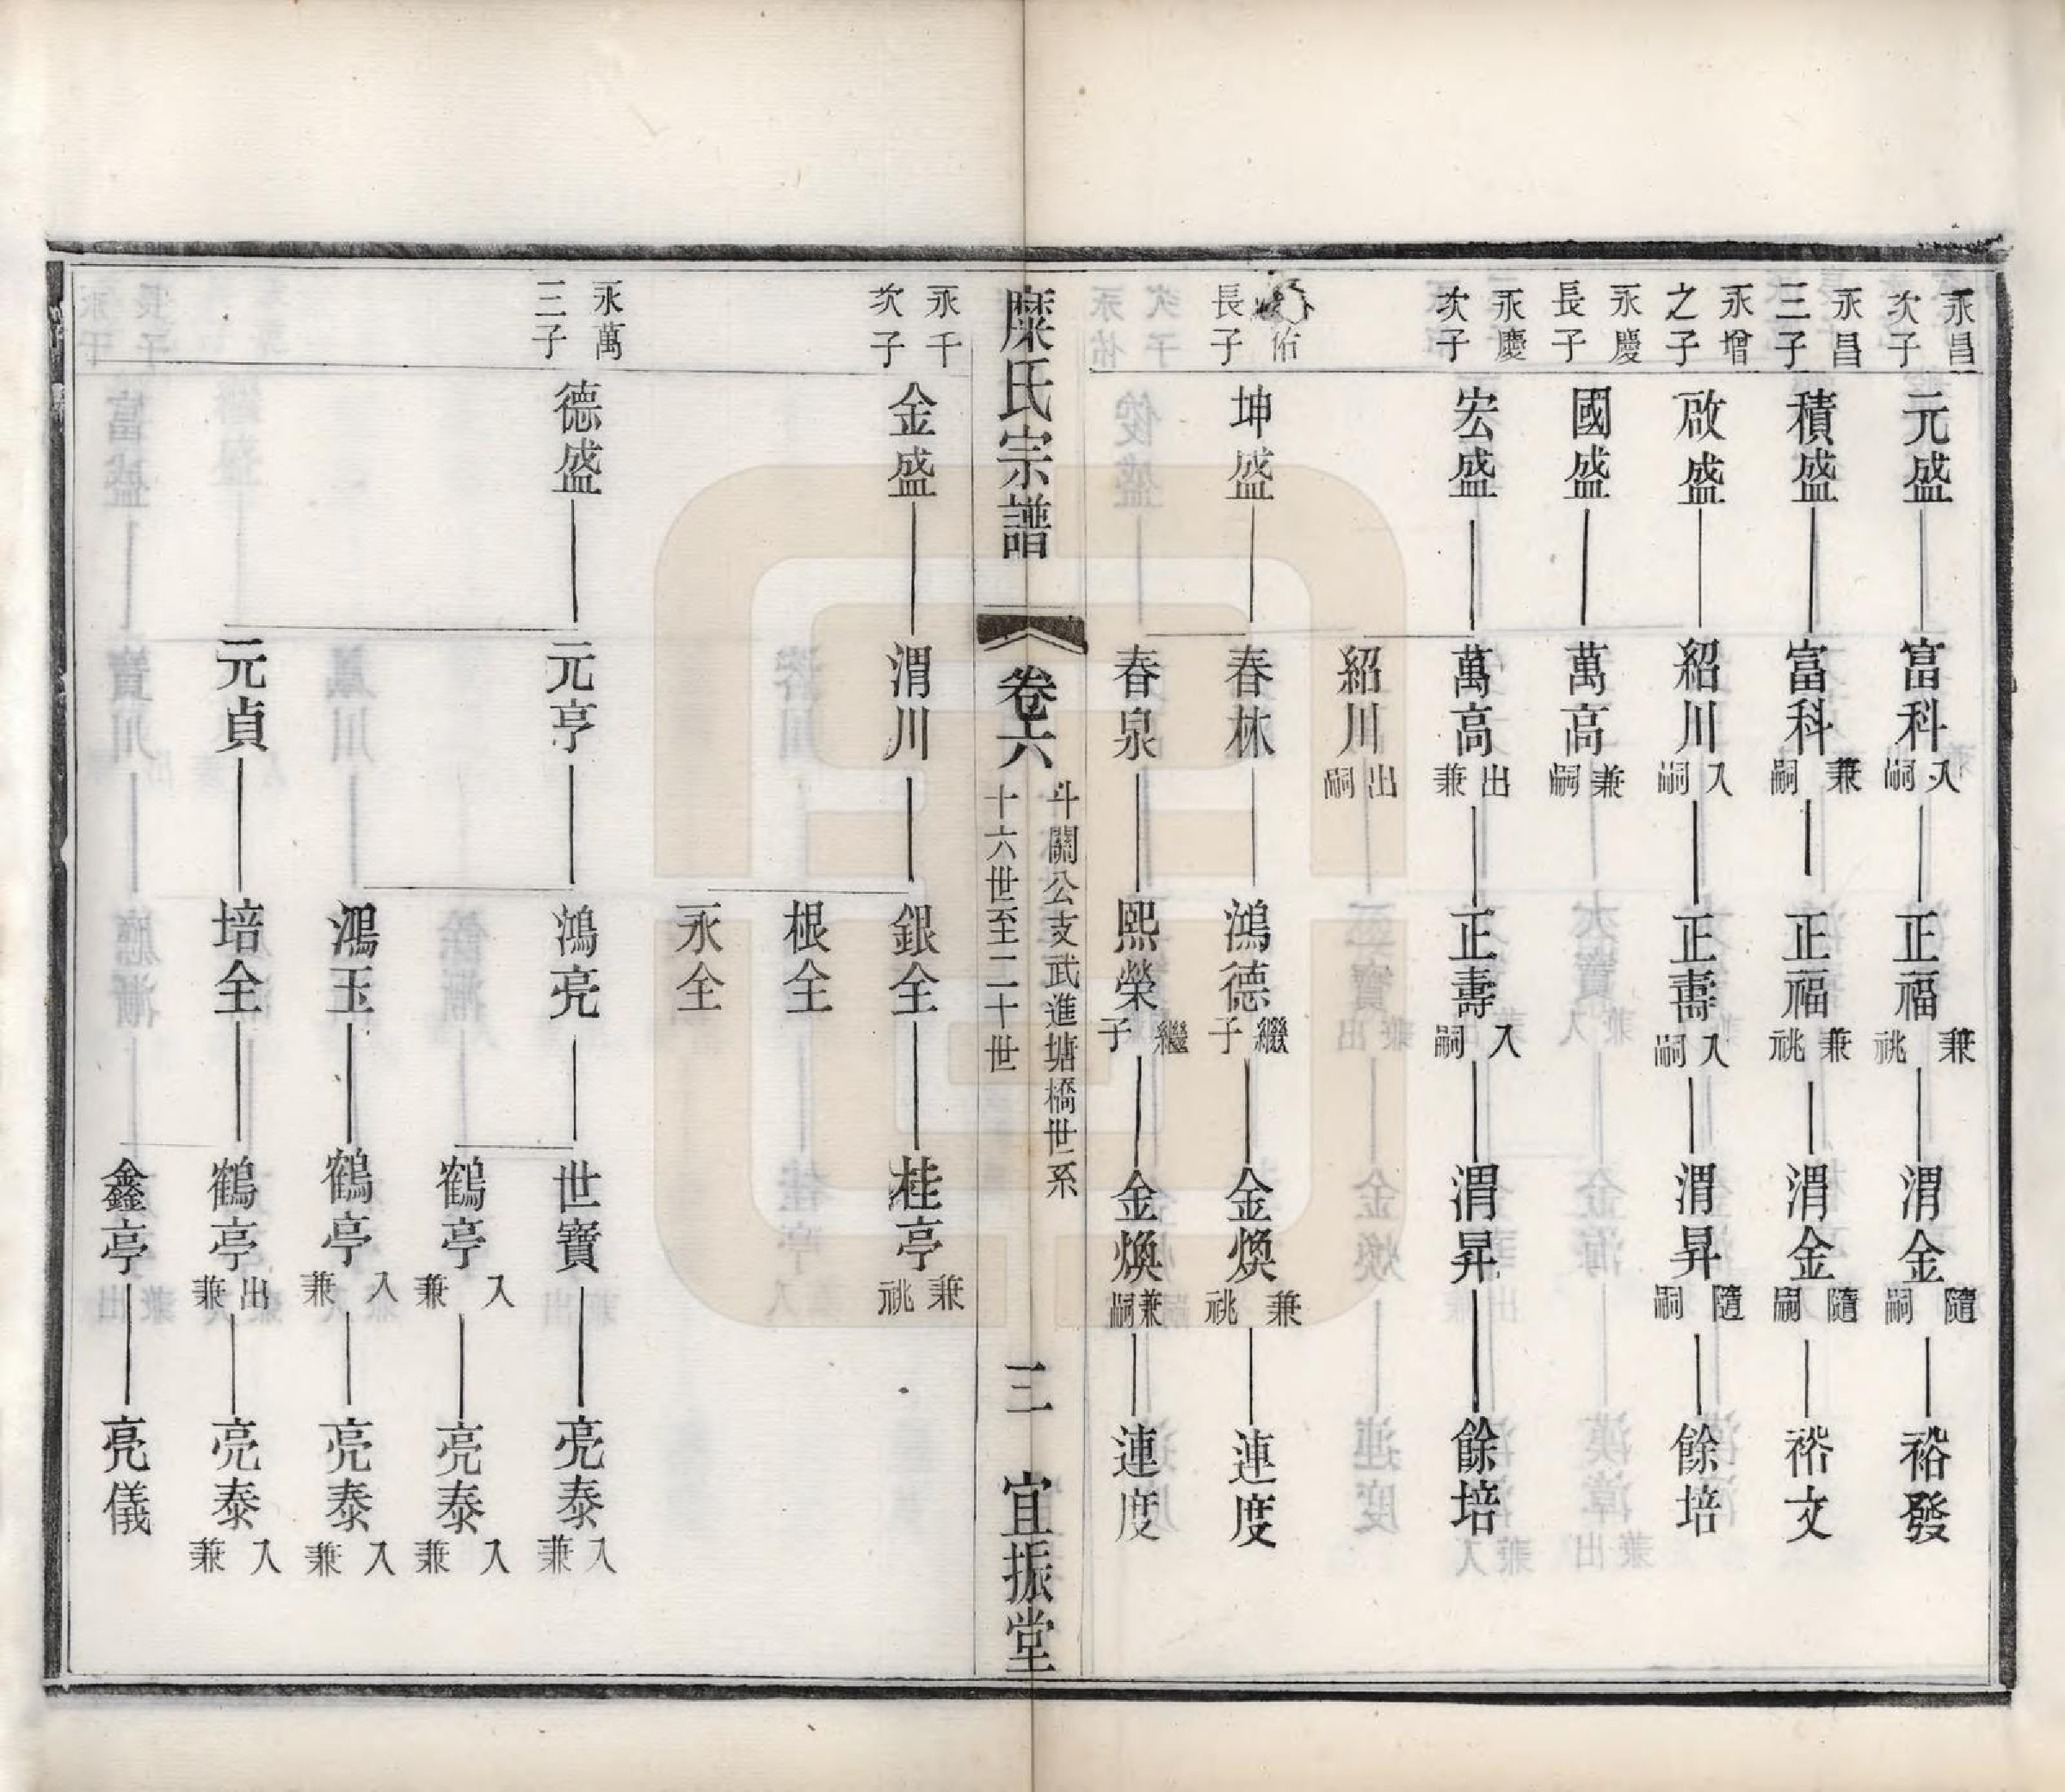 永昌次子 元盛 富科 入嗣 正福 兼祧 渭金 隨嗣 裕發
永昌三子 積盛 富科 兼嗣 正福 兼祧 渭金 隨嗣 裕文
永增之子 啟盛 紹川 入嗣 正壽 入嗣 渭昇 隨嗣 餘培
永慶長子 國盛 萬高 兼嗣
永慶次子 宏盛 萬高 出兼 正壽 入嗣 渭昇 餘培
紹川 出嗣
佑長子 坤盛 春林 鴻德 繼子 金煥 兼祧 連度
春泉 熙榮 繼子 金煥 兼嗣 連度
糜氏宗譜 卷六 斗關公支武進塘橋世系 十六世至二十世 三 宜振堂
永千次子 金盛 渭川 銀全 桂亭 兼祧
根全
永全
永萬三子 德盛 元亨 鴻亮 世寶 亮泰 入兼
鶴亭 入兼 亮泰 入兼
鴻玉 鶴亭 入兼 亮泰 入兼
元貞 培全 鶴亭 出兼 亮泰 入兼
鑫亭 亮儀